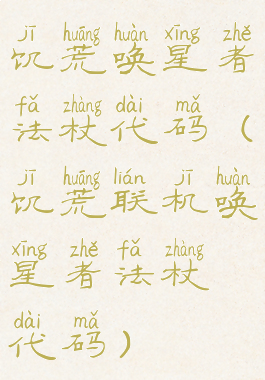 jī huāng huàn xīng zhě
饥荒唤星者
fǎ zhàng dài mǎ
法杖代码（
jī huāng lián jī huàn
饥荒联机唤
xīng zhě fǎ zhàng
星者法杖
dài mǎ
代码）